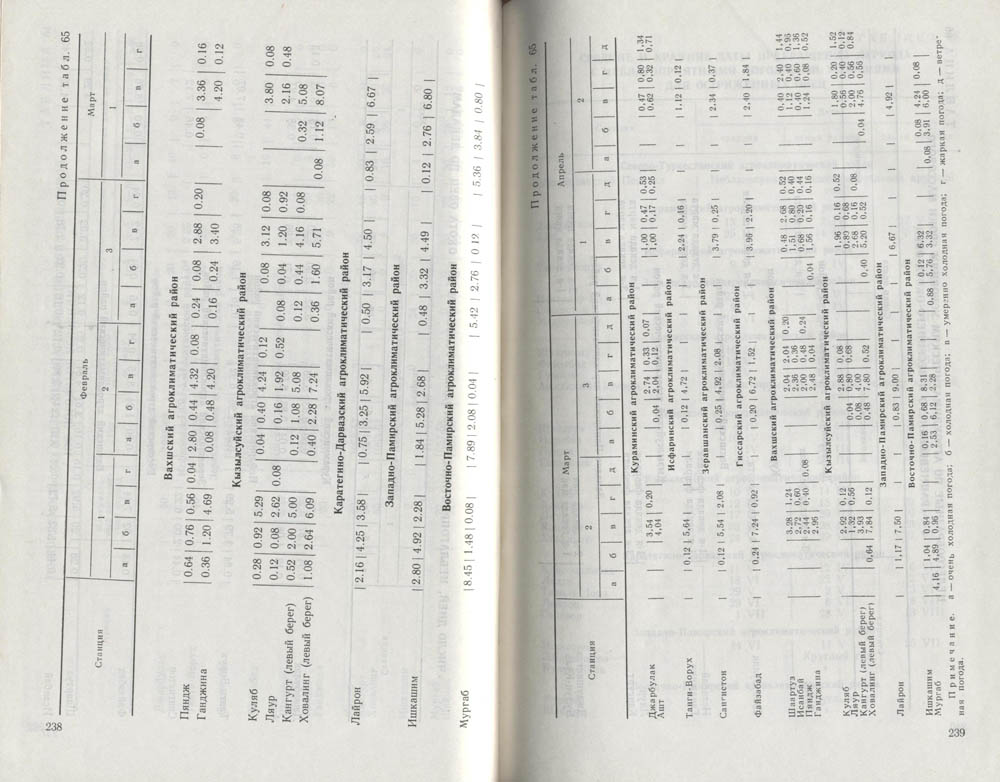 238
Продолжение табл. 65
Станция Февраль Март
1 2 3 1
а б в г а б в г а б в г а б в г
Вахшский агроклиматический район
Пяндж 0.64 0.76 0.56 0.04 2.80 0.44 4.32 0.08 0.24 0.08 2.88 0.20 0.08 3.36 0.16
Ганджина 0.36 1.20 4.69 0.08 0.48 4.20 0.16 0.24 3.40 4.20 0.12
Кызылсуйский агроклиматический район
Куляб 0.28 0.92 5.29 0.04 0.40 4.24 0.12 0.08 3.12 0.08 3.80 0.08
Ляур 0.12 0.08 2.62 0.08 0.16 1.92 0.52 0.08 0.04 1.20 0.92 2.16 0.48
Кангурт (левый берег) 0.52 2.00 5.00 0.12 1.08 5.08 0.12 0.44 4.16 0.08 0.32 5.08
Ховалинг (левый берег) 1.08 2.64 6.09 0.40 2.28 7.24 0.36 1.60 5.71 0.08 1.12 8.07
Каратегино-Дарвазский агроклиматический район
Лайрон 2.16 4.25 3.58 0.75 3.25 5.92 0.50 3.17 4.50 0.83 2.59 6.67
Западно-Памирский район
Ишкашим 2.80 4.92 2.28 1.84 5.28 2.68 0.48 3.32 4.49 0.12 2.76 6.80
Восточно-Памирский район
Мургаб 8.45 1.48 0.08 7.89 2.08 0.04 5.42 2.76 0.12 5.36 3.84 0.80
Продолжение табл. 65
Станция Март Апрель
2 3 1 2
а б в г д а б в г д а б в г д а б в г д
Кураминский агроклиматический район
Джарбулак 3,54 0,20 2,74 0,33 0,07 1,00 0,47 0,53 0,47 0,80 1,34
Ашт 4,04 0,04 2,04 0,12 1,00 0,17 0,25 0,62 0,32 0,71
Исфаринский агроклиматический район
Танги-Ворух 0,12 5,64 0,12 4,72 2,24 0,16 1,12 0,12
Зеравшанский агроклиматический район
Сангистон 0,12 5,54 2,08 0,25 4,92 2,08 3,79 0,25 2,34 0,37
Гиссарский агроклиматический район
Файзабад 0,24 7,24 0,92 0,20 6,72 1,52 3,96 2,20 2,40 1,84
Вахшский агроклиматический район
Шаартуз 3,28 1,24 2,04 2,04 0,20 0,48 2,68 0,52 0,40 2,40 1,44
Исанбай 2,72 0,60 2,36 0,36 1,51 0,80 0,40 1,12 0,40 0,96
Пяндж 2,44 0,40 0,08 2,00 0,48 0,24 0,68 0,20 0,44 0,40 0,60 1,36
Ганджина 2,96 2,48 0,04 0,04 1,56 0,16 0,16 1,24 0,08 0,52
Кызылсуйский агроклиматический район
Куляб 2,92 0,12 2,88 0,08 1,96 0,16 0,52 1,80 0,20 1,52
Ляур 1,32 0,56 0,04 0,80 0,68 0,89 0,68 0,56 0,40 0,12
Кангурт (левый берег) 3,93 0,08 4,00 2,68 0,16 0,08 2,00 0,56 0,84
Ховалинг (левый берег) 0,64 7,84 0,12 0,48 7,80 0,52 0,40 5,20 0,52 0,04 4,76 0,56
Западно-Памирский район
Лайрон 1,17 7,50 0,83 9,00 6,67 4,92
Восточно-Памирский район
Ишкашим 1,04 0,84 0,16 0,68 8,31 0,12 6,32 0,08 4,24 0,08
Мургаб 4,16 4,89 0,96 2,53 6,12 2,28 0,88 5,76 3,32 0,08 3,91 6,00
Примечание. а — очень холодная погода; б — холодная погода; в — умеренно холодная погода; г — жаркая погода; д — ветре-
ная погода.
239